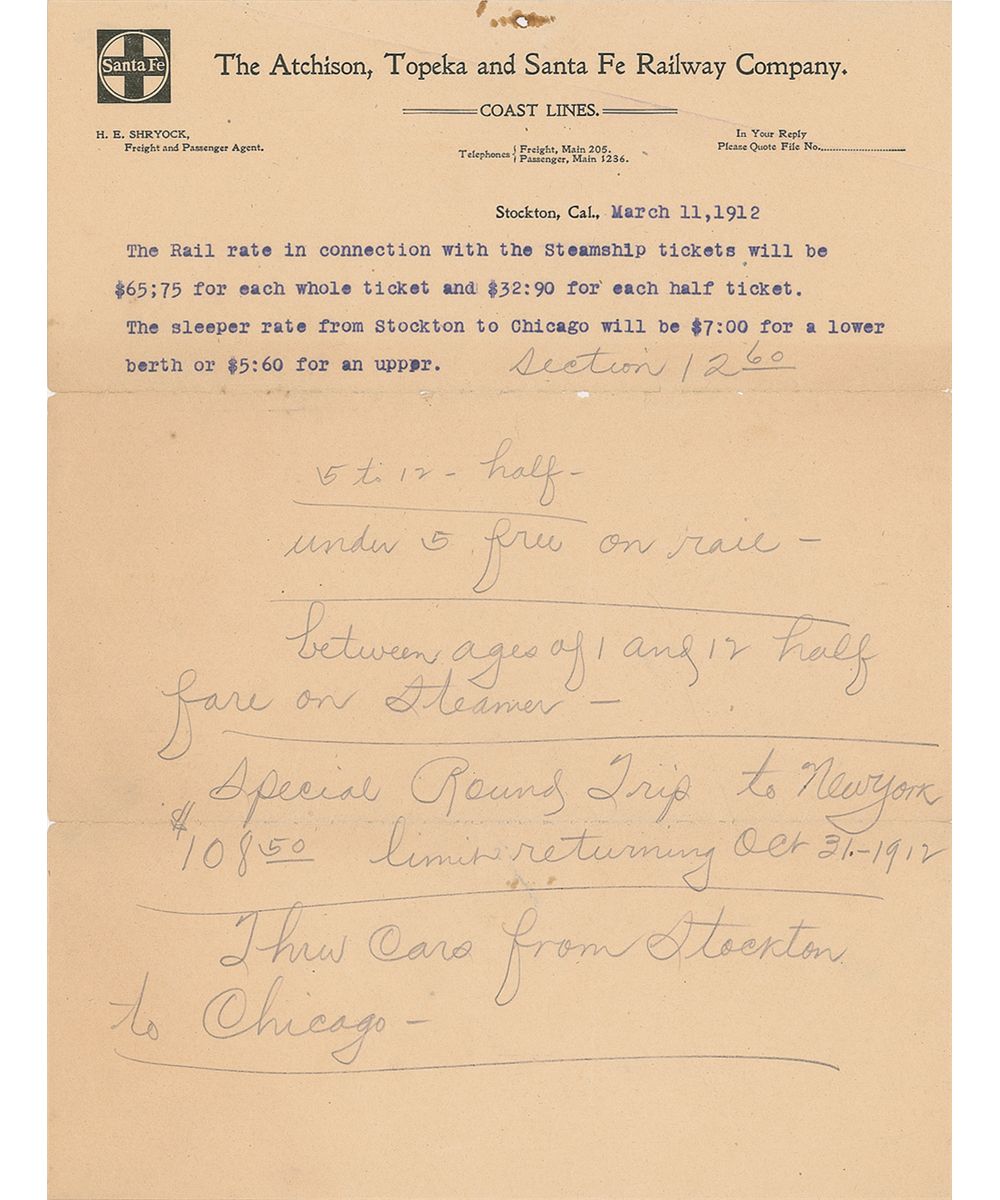 Santa Fe
The Atchison, Topeka and Santa Fe Railway Company.
COAST LINES.
H. E. SHRYOCK,
Freight and Passenger Agent.
Telephones { Freight, Main 205.
Passenger, Main 1236.
In Your Reply
Please Quote File No.
Stockton, Cal., March 11,1912
The Rail rate in connection with the Steamship tickets will be
$65;75 for each whole ticket and $32:90 for each half ticket.
The sleeper rate from Stockton to Chicago will be $7:00 for a lower
berth or $5:60 for an upper. Section 12 60
5 to 12 - half -
under 5 free on rail -
between ages of 1 and 12 half
fare on Steamer -
Special Round Trip to New York
$108 50 limit returning Oct 31.-1912
Thru Cars from Stockton
to Chicago -